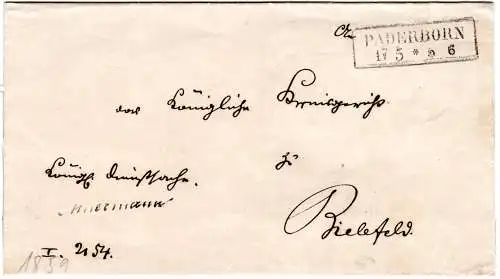 An
PADERBORN
17 5 * 5 6
das Königliche Kreisgericht
zu
Königl. Dienstsache.
Bielefeld.
I. 2154.
1859